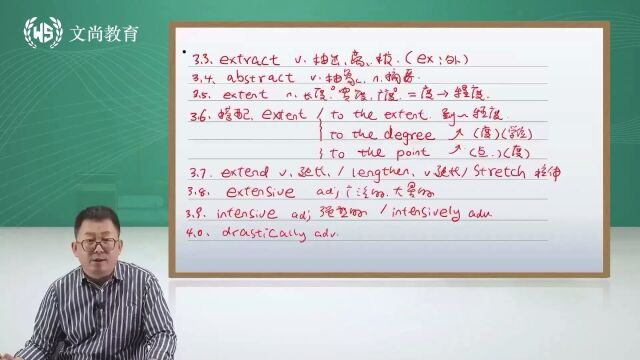 文尚教育
3.3. extract v. 抽出,离,拔.(ex:外)
3.4. abstract v. 抽象、n. 摘要.
3.5. extent n. 长度、宽度、广度. = 度 → 程度.
3.6. 搭配. extent / to the extent. 到~程度
to the degree ↗ (度)(学位)
to the point ↗ (点.)(度)
3.7. extend v. 延长, / lengthen. v 延长/ stretch 拉伸
3.8. extensive adj 广泛的.大量的
3.9. intensive adj 强烈的 / intensively adv.
4.0. drastically adv.